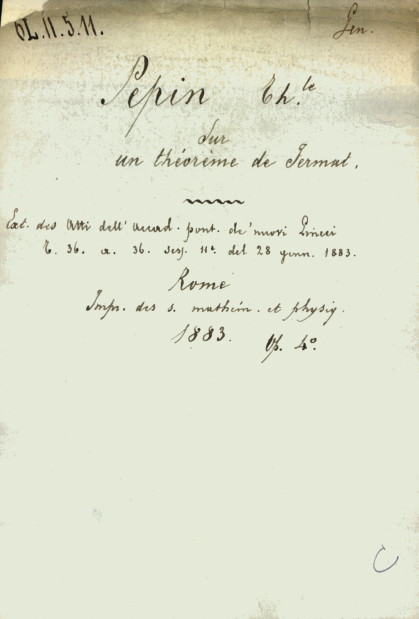 OL.11.5.11.
Gen.
Pepin Th.le
Sur
un théorème de Fermat.
Ext. des Atti dell' accad. pont. de' nuovi Lincei
T. 36. a. 36. sess. IIa. del 28 genn. 1883.
Rome
Impr. des s. mathém. et physiq.
1883. 4o.
C